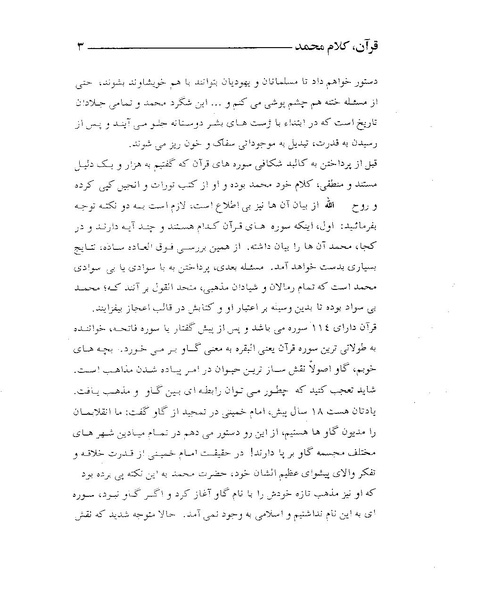 قرآن، کلام محمد ــــــــــــــــــــــــــــــــــــــــ ۳
دستور خواهم داد تا مسلمانان و یهودیان بتوانند با هم خویشاوند بشوند، حتی
از مسئله ختنه هم چشم پوشی می کنم و ... این شگرد محمد و تمامی جلادان
تاریخ است که در ابتداء با ژست های بشر دوستانه جلو می آیند و پس از
رسیدن به قدرت، تبدیل به موجوداتی سفاک و خون ریز می شوند.
قبل از پرداختن به کالبد شکافی سوره های قرآن که گفتیم به هزار و یک دلیل
مستند و منطقی، کلام خود محمد بوده و او از کتب تورات و انجیل کپی کرده
و روح الله از بیان آن ها نیز بی اطلاع است، لازم است به دو نکته توجه
بفرمائید: اول، اینکه سوره های قرآن کدام هستند و چند آیه دارند و در
کجا، محمد آن ها را بیان داشته. از همین بررسی فوق العاده ساده، نتایج
بسیاری بدست خواهد آمد. مسئله بعدی، پرداختن به با سوادی یا بی سوادی
محمد است که تمام رمالان و شیادان مذهبی، متحد القول بر آنند که؛ محمد
بی سواد بوده تا بدین وسیله بر اعتبار او و کتابش در قالب اعجاز بیفزایند.
قرآن دارای ۱۱۴ سوره می باشد و پس از پیش گفتار یا سوره فاتحه، خواننده
به طولانی ترین سوره قرآن یعنی البقره به معنی گاو بر می خورد. بچه های
خوبم، گاو اصولاً نقش ساز ترین حیوان در امر پیاده شدن مذاهب است.
شاید تعجب کنید که چطور می توان رابطه ای بین گاو و مذهب یافت.
یادتان هست ۱۸ سال پیش، امام خمینی در تمجید از گاو گفت: ما انقلابمان
را مدیون گاو ها هستیم، از این رو دستور می دهم در تمام میادین شهر های
مختلف مجسمه گاو بر پا دارند! در حقیقت امام خمینی از قدرت خلاقه و
تفکر والای پیشوای عظیم الشان خود، حضرت محمد به این نکته پی برده بود
که او نیز مذهب تازه خودش را با نام گاو آغاز کرد و اگر گاو نبود، سوره
ای به این نام نداشتیم و اسلامی به وجود نمی آمد. حالا متوجه شدید که نقش